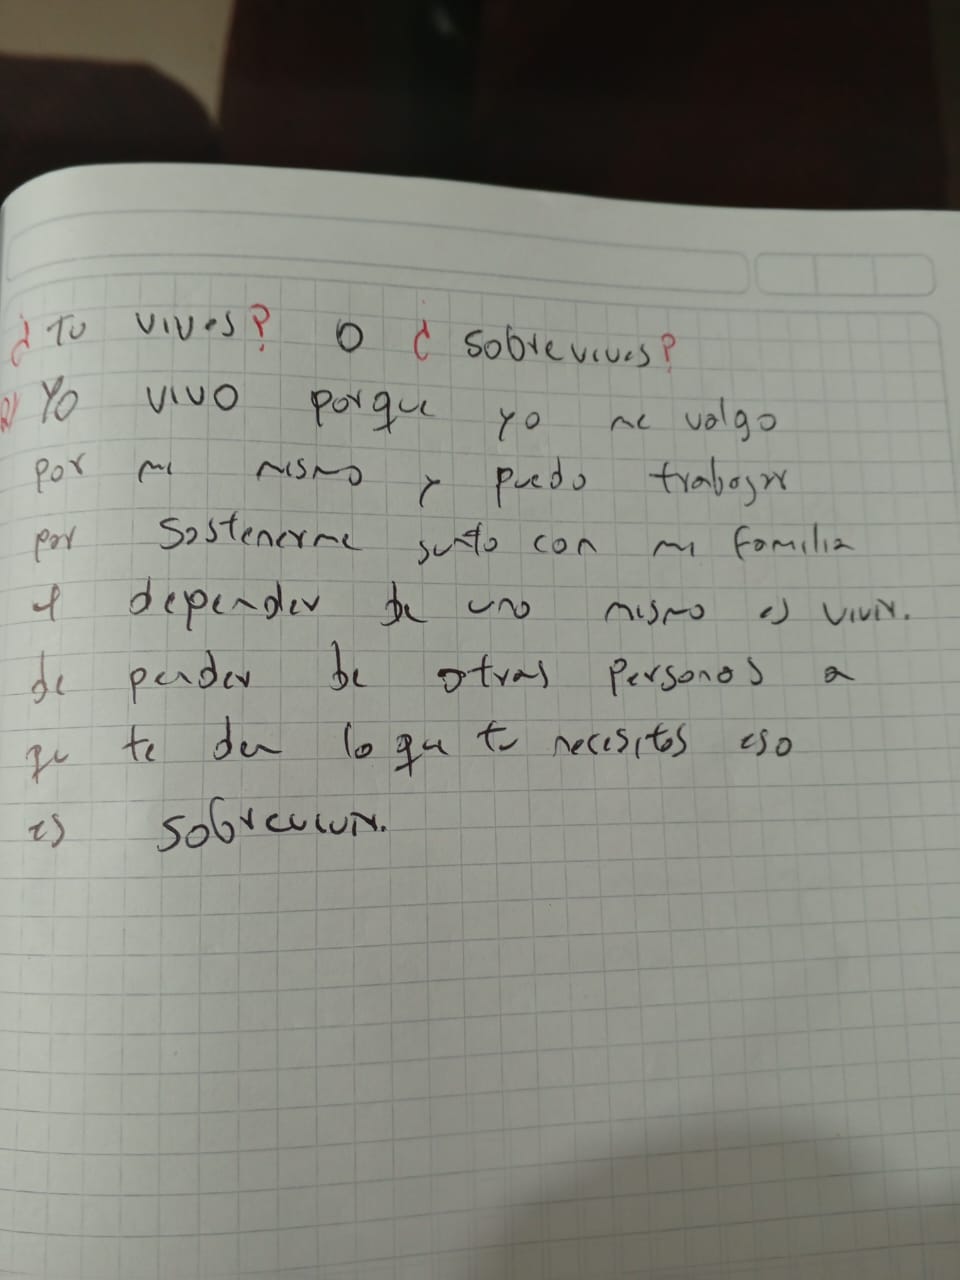 ¿Tu vives? O ¿sobrevives?
R/ Yo vivo porque yo me valgo
por mi mismo y puedo trabajar
por sostenerme junto con mi familia
el depender de uno mismo es vivir.
depender de otras personas a
que te den lo que tu necesitas eso
es sobrevivir.